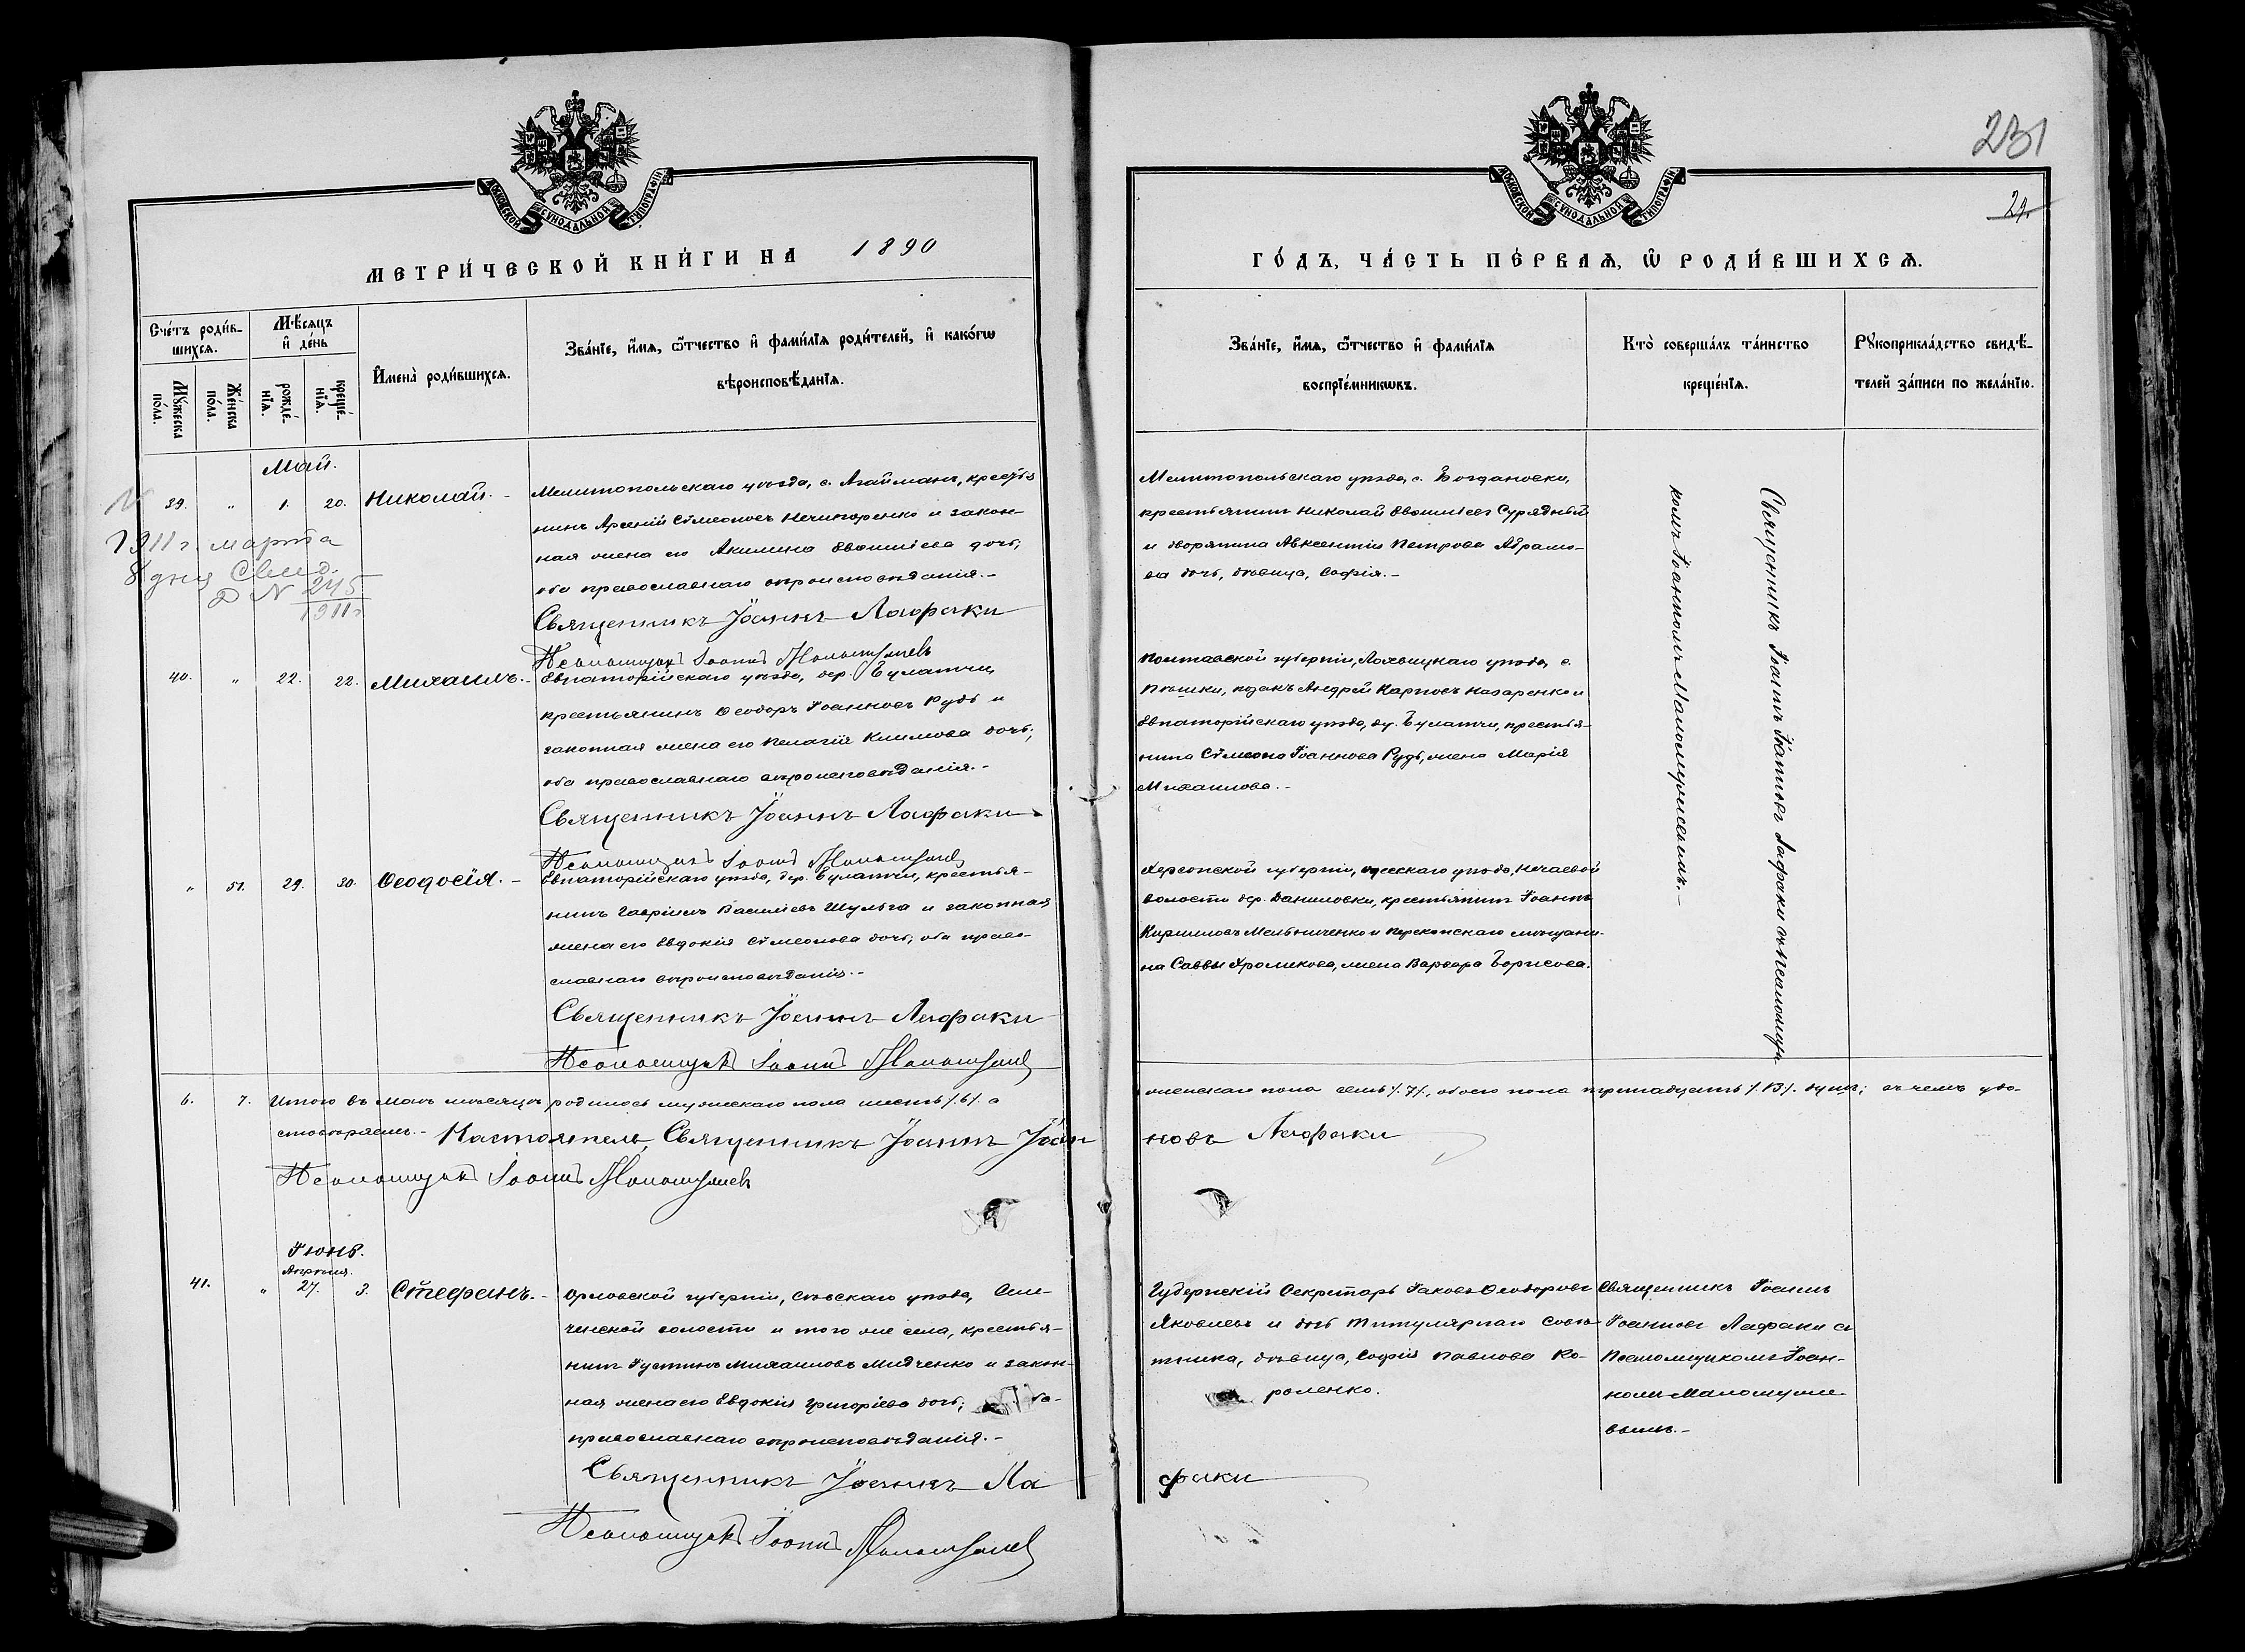 231
29.
МОСКОВСКОЙ СѴНОДАЛЬНОЙ ТИПОГРАФІИ
МЕТРИ́ЧЕСКОЙ КНИ́ГИ НА 1890
МОСКОВСКОЙ СѴНОДАЛЬНОЙ ТИПОГРАФІИ
ГО́ДЪ, ЧА́СТЬ ПЕ́РВАѦ, Ѽ РОДИ́ВШИХСѦ.
Сче́тъ роди́в-
шихсѧ.
Мꙋ́жеска
по́ла.
Же́нска
по́ла.
Мѣ́сѧцъ
и҆ де́нь
рожде́-
нїѧ.
креще́-
нїѧ.
И҆мена̀ роди́вшихсѧ.
Зва́нїе, и҆́мѧ, ѻ҆́тчество и҆ фами́лїѧ роди́телей, и҆ како́гѡ
вѣроисповѣ́данїѧ.
Зва́нїе, и҆́мѧ, ѻ҆́тчество и҆ фами́лїѧ
воспрїе́мникѡвъ.
Кто̀ соверша́лъ та́инство
креще́нїѧ.
Рꙋкоприкла́дство свидѣ́-
телей за́писи по жела́нїю.
Май.
39. " 1. 20. Николай. - Мелитопольскаго уѣзда, с. Агайманъ, крестья
нинъ Арсеній Сѵмеоновъ Нечипоренко и закон-
ная жена его Акилина Евѳиміева дочь,
оба православнаго вѣроисповѣданія.-
Священникъ Іоаннъ Лафаки
Псаломщикъ Іоаннъ
1911 г. марта
8 дня Свид.
№ 245
1911 г
Мелитопольскаго уѣзда, с. Богдановки,
крестьянинъ Николай Евѳиміевъ Сурядный
и дворянина Авксентія Петрова Абрамо-
ва дочь, дѣвица, Софія.-
40. " 22. 22. Михаилъ. - Евпаторійскаго уѣзда, дер. Булатчи,
крестьянинъ Ѳеодоръ Іоанновъ Рудь и
законная жена его Пелагія Климова дочь;
оба православнаго вѣроисповѣданія.-
Священникъ Іоаннъ Лафаки
Псаломщикъ Іоаннъ
Полтавской губерніи, Лохвицкаго уѣзда, с.
козакъ Андрей Карповъ Назаренко и
Евпаторійскаго уѣзда, д. Булатчи, крестья-
нина Сѵмеона Іоаннова Рудь, жена Марія
Михаилова.-
" 51. 29. 30. Ѳеодосія. - Евпаторійскаго уѣзда, дер. Булатчи, крестья-
нинъ Гавріилъ Василіевъ Шульга и законная
жена его Евдокія Сѵмеонова дочь; оба право-
славнаго вѣроисповѣданія.-
Священникъ Іоаннъ Лафаки
Псаломщикъ Іоаннъ
Херсонской губерніи, Одесскаго уѣзда, Нечаевой
волости дер. Даниловки, крестьянинъ Іоаннъ
Кирилловъ Мельниченко и Перекопскаго мѣщани-
на Саввы Хромикова, жена Варвара Борисова.
Священникъ Іоаннъ Іоанновъ Лафаки съ псаломщи-
комъ Іоанномъ
6. 7. Итого въ маѣ мѣсяцѣ родилось мужескаго пола шесть /.6/. а
женскаго пола семь /.7/., обоего пола тринадцать /.13/. душъ; въ чемъ удо-
стовѣряемъ.- Настоятель, Священникъ Іоаннъ Іоан
новъ Лафаки
Псаломщикъ Іоаннъ
Іюнь.
Апрѣля.
41. " 27. 3. Стефанъ. - Орловской губерніи, Сѣвскаго уѣзда, Сем-
ченской волости и того же села, крестья-
нинъ Іустинъ Михаиловъ Мидченко и закон-
ная жена его Евдокія Григоріева дочь; оба-
православнаго вѣроисповѣданія.-
Священникъ Іоаннъ Ла
факи
Псаломщикъ Іоаннъ
Губернскій Секретарь Іаковъ Ѳеодоровъ
Яковлевъ и дочь Титулярнаго Совѣ-
тника, дѣвица, Софія Павлова Ко-
роленко.
Священникъ Іоаннъ
Іоанновъ Лафаки съ
Псаломщикомъ Іоан-
номъ
вымъ.-